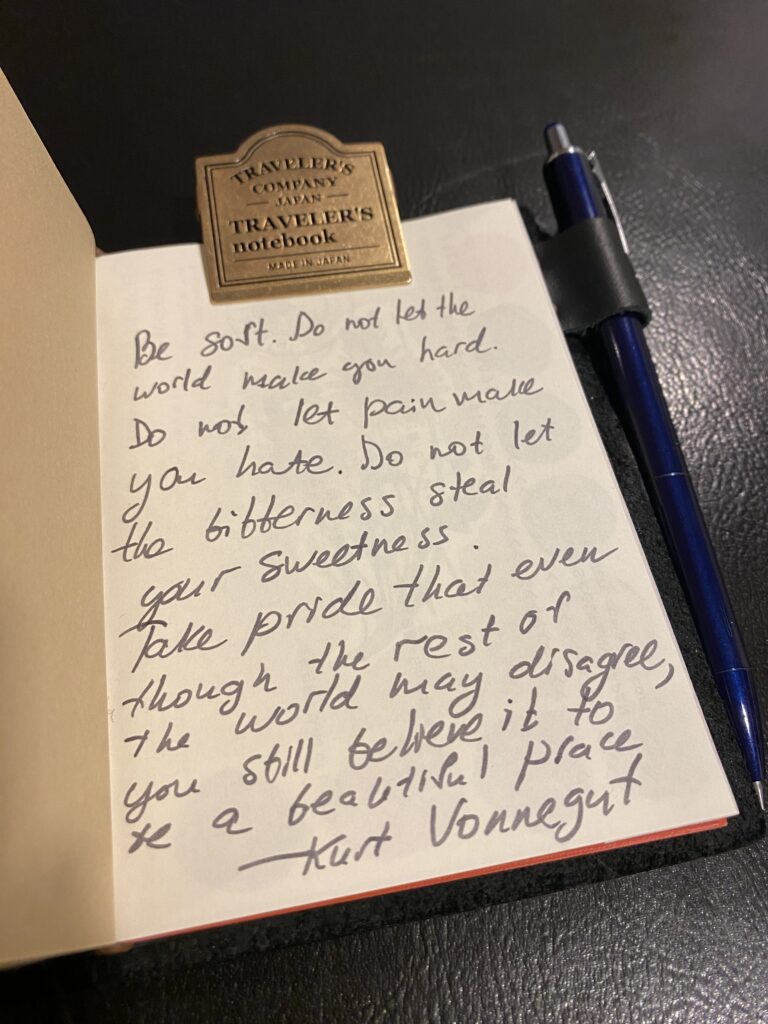 TRAVELER'S
COMPANY
JAPAN
TRAVELER'S
notebook
MADE IN JAPAN
Be soft. Do not let the
world make you hard.
Do not let pain make
you hate. Do not let
the bitterness steal
your sweetness.
Take pride that even
though the rest of
the world may disagree,
you still believe it to
be a beautiful place
—Kurt Vonnegut